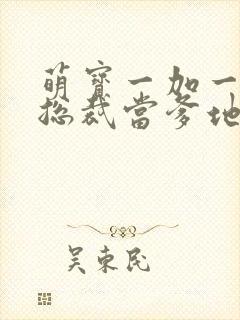 萌寶一加一
總裁當爹地
吴東民